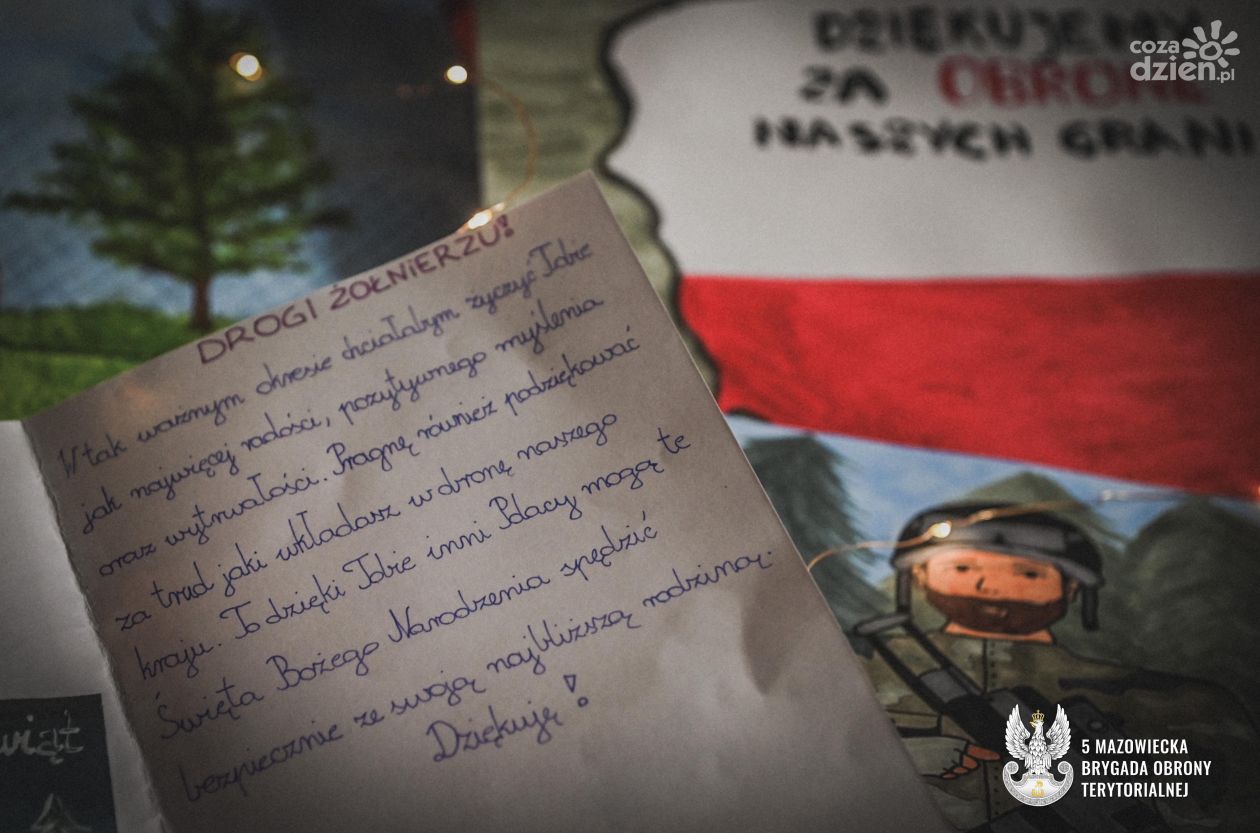 DZIĘKUJEMY
ZA OBRONĘ
NASZYCH GRANI
coza
dzien.pl
DROGI ŻOŁNIERZU!
W tak ważnym okresie chciałabym życzyć Tobie
jak najwięcej radości, pozytywnego myślenia
oraz wytrwałości. Pragnę również podziękować
za trud jaki wkładasz w obronę naszego
kraju. To dzięki Tobie inni Polacy mogą te
Święta Bożego Narodzenia spędzić
bezpiecznie ze swoją najbliższą rodziną.
Dziękuję!
wiąt
5 MAZOWIECKA
BRYGADA OBRONY
TERYTORIALNEJ